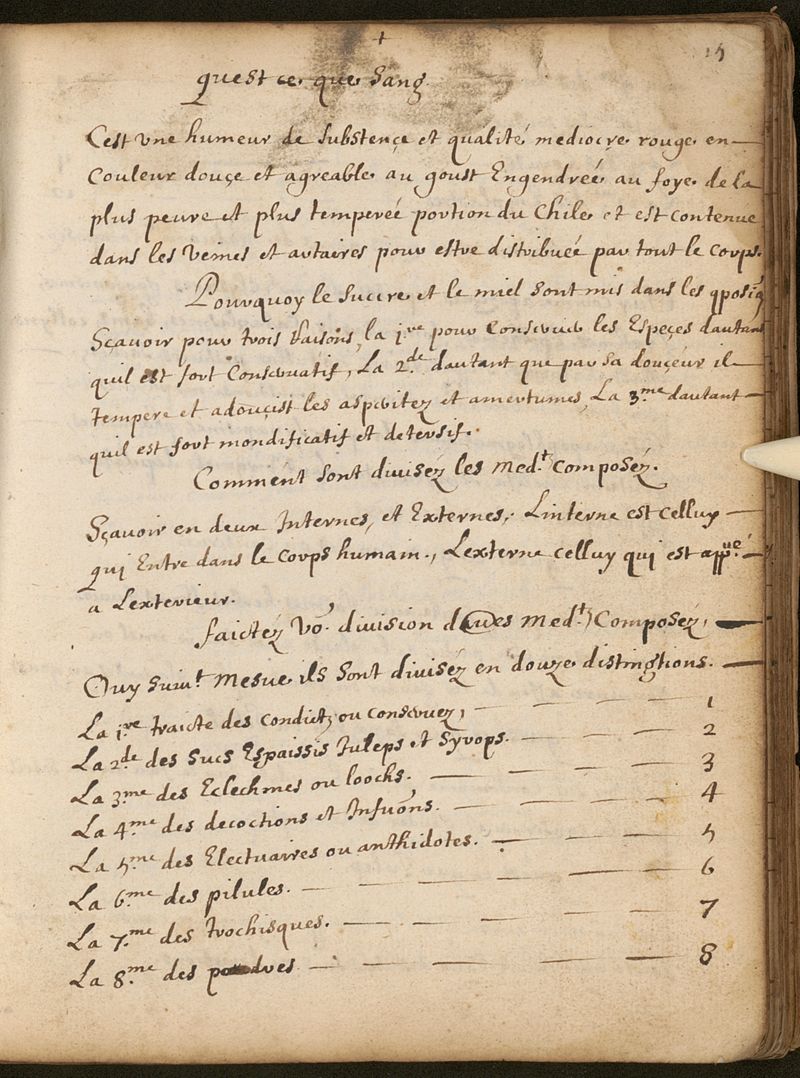 +
15
quest ce que sang.
Cest vne humeur de substençe et qualité mediocre rouge en
Couleur douçe et agreable au goust Engendreé au foye de la
plus peure et plus tempereé portion du Chile et est contenue
dans les veines et artaires pour estre distribueé par tout le corps.
Pourquoy le succre et le miel sont mis dans les
Sçavoir pour trois Raisons, la 1.re pour Conserver les Espeçes dautant
quil est fort Conservatif, La 2.de dautant que par sa douçeur il
tempere et adouçist les aspritez et amertumes, La 3.me dautant
quil est fort mondificatif et detersif.
Comment sont divisez les med.t composez.
Sçavoir en deux Internes, et Externes,. Linterne est celluy
qui Entre dans le corps humain., Lexterne celluy qui est app.ué
a Lexterieur.
faictez vo.' division des med.tz Composez,
Ouy suiv.t mesue ils sont divisez en douze distingtions.
La 1.re traicte des condictz ou conservez, 1
La 2.de des sucs Espaissis Juleps et Syrops. 2
La 3.me des Eclechmes ou loochs. 3
La 4.me des decoctions et Infuõns. 4
La 5.me des Electuaires ou anthidotes. 5
La 6.me des pilules. 6
La 7.me des trochisques. 7
La 8.me des poudres 8